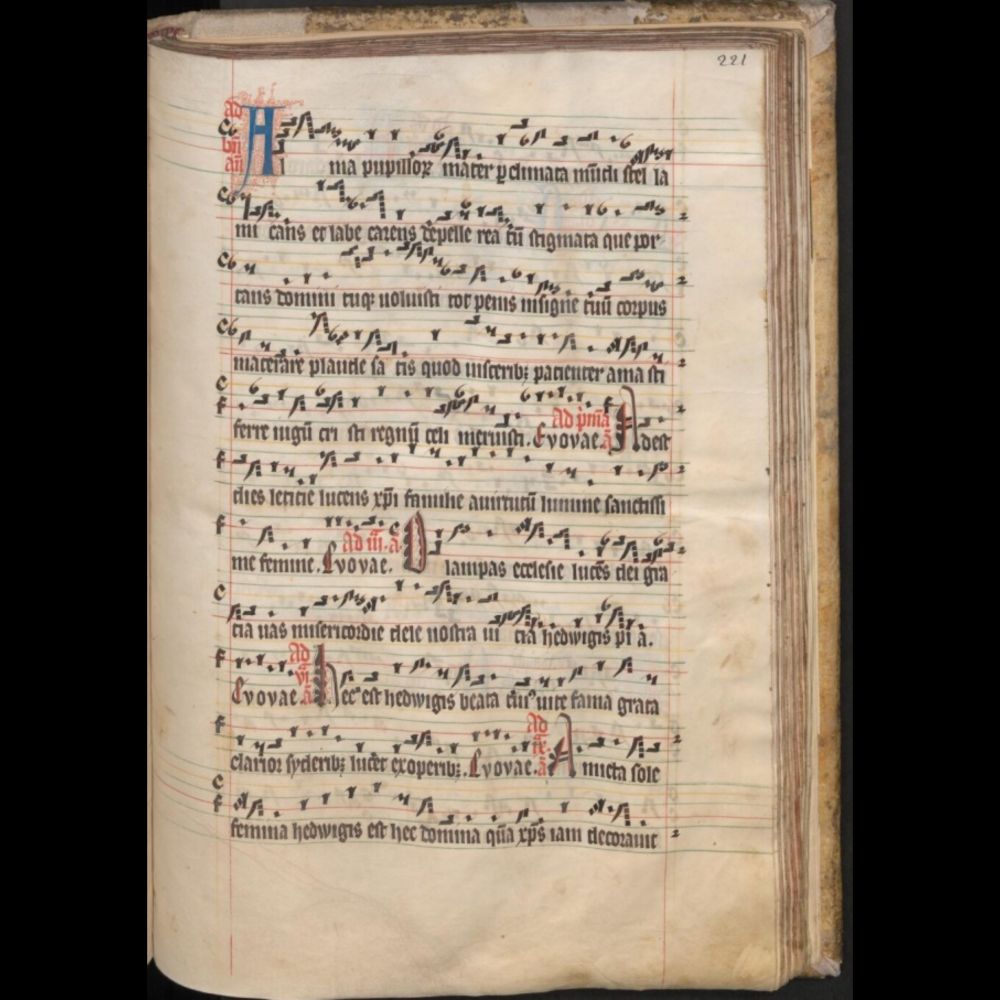 221
Ad bñ añ
Alma pupilloꝝ mater ꝑ climata mũdi stel la
mi cans et labe carens depelle rea tũ stigmata que por
tans domini tuqꝫ uoluisti tot penis insigne tuũ corpus
macerare plaude sa tis quod insceribꝫ patienter ama sti
ferre iugũ cri sti regnũ celi meruisti. Evovae. Ad pͥmã ã Adest
dies leticie lucens xp̃i familie auirtutũ lumine sanctissi
me femine. Evovae. Ad iii. ã Lampas ecclesie lucẽs dei gra
cia uas misericordie dele nostra ui cia hedwigis pi a.
Evovae Ad vi ã Hec est hedwigis beata cũi⁹ uite fama grata
clarior syderibꝫ lucet ex operibꝫ. Evovae. Ad ix. ã Amicta sole
femina hedwigis est hec domina quã xp̃s iam decorauit